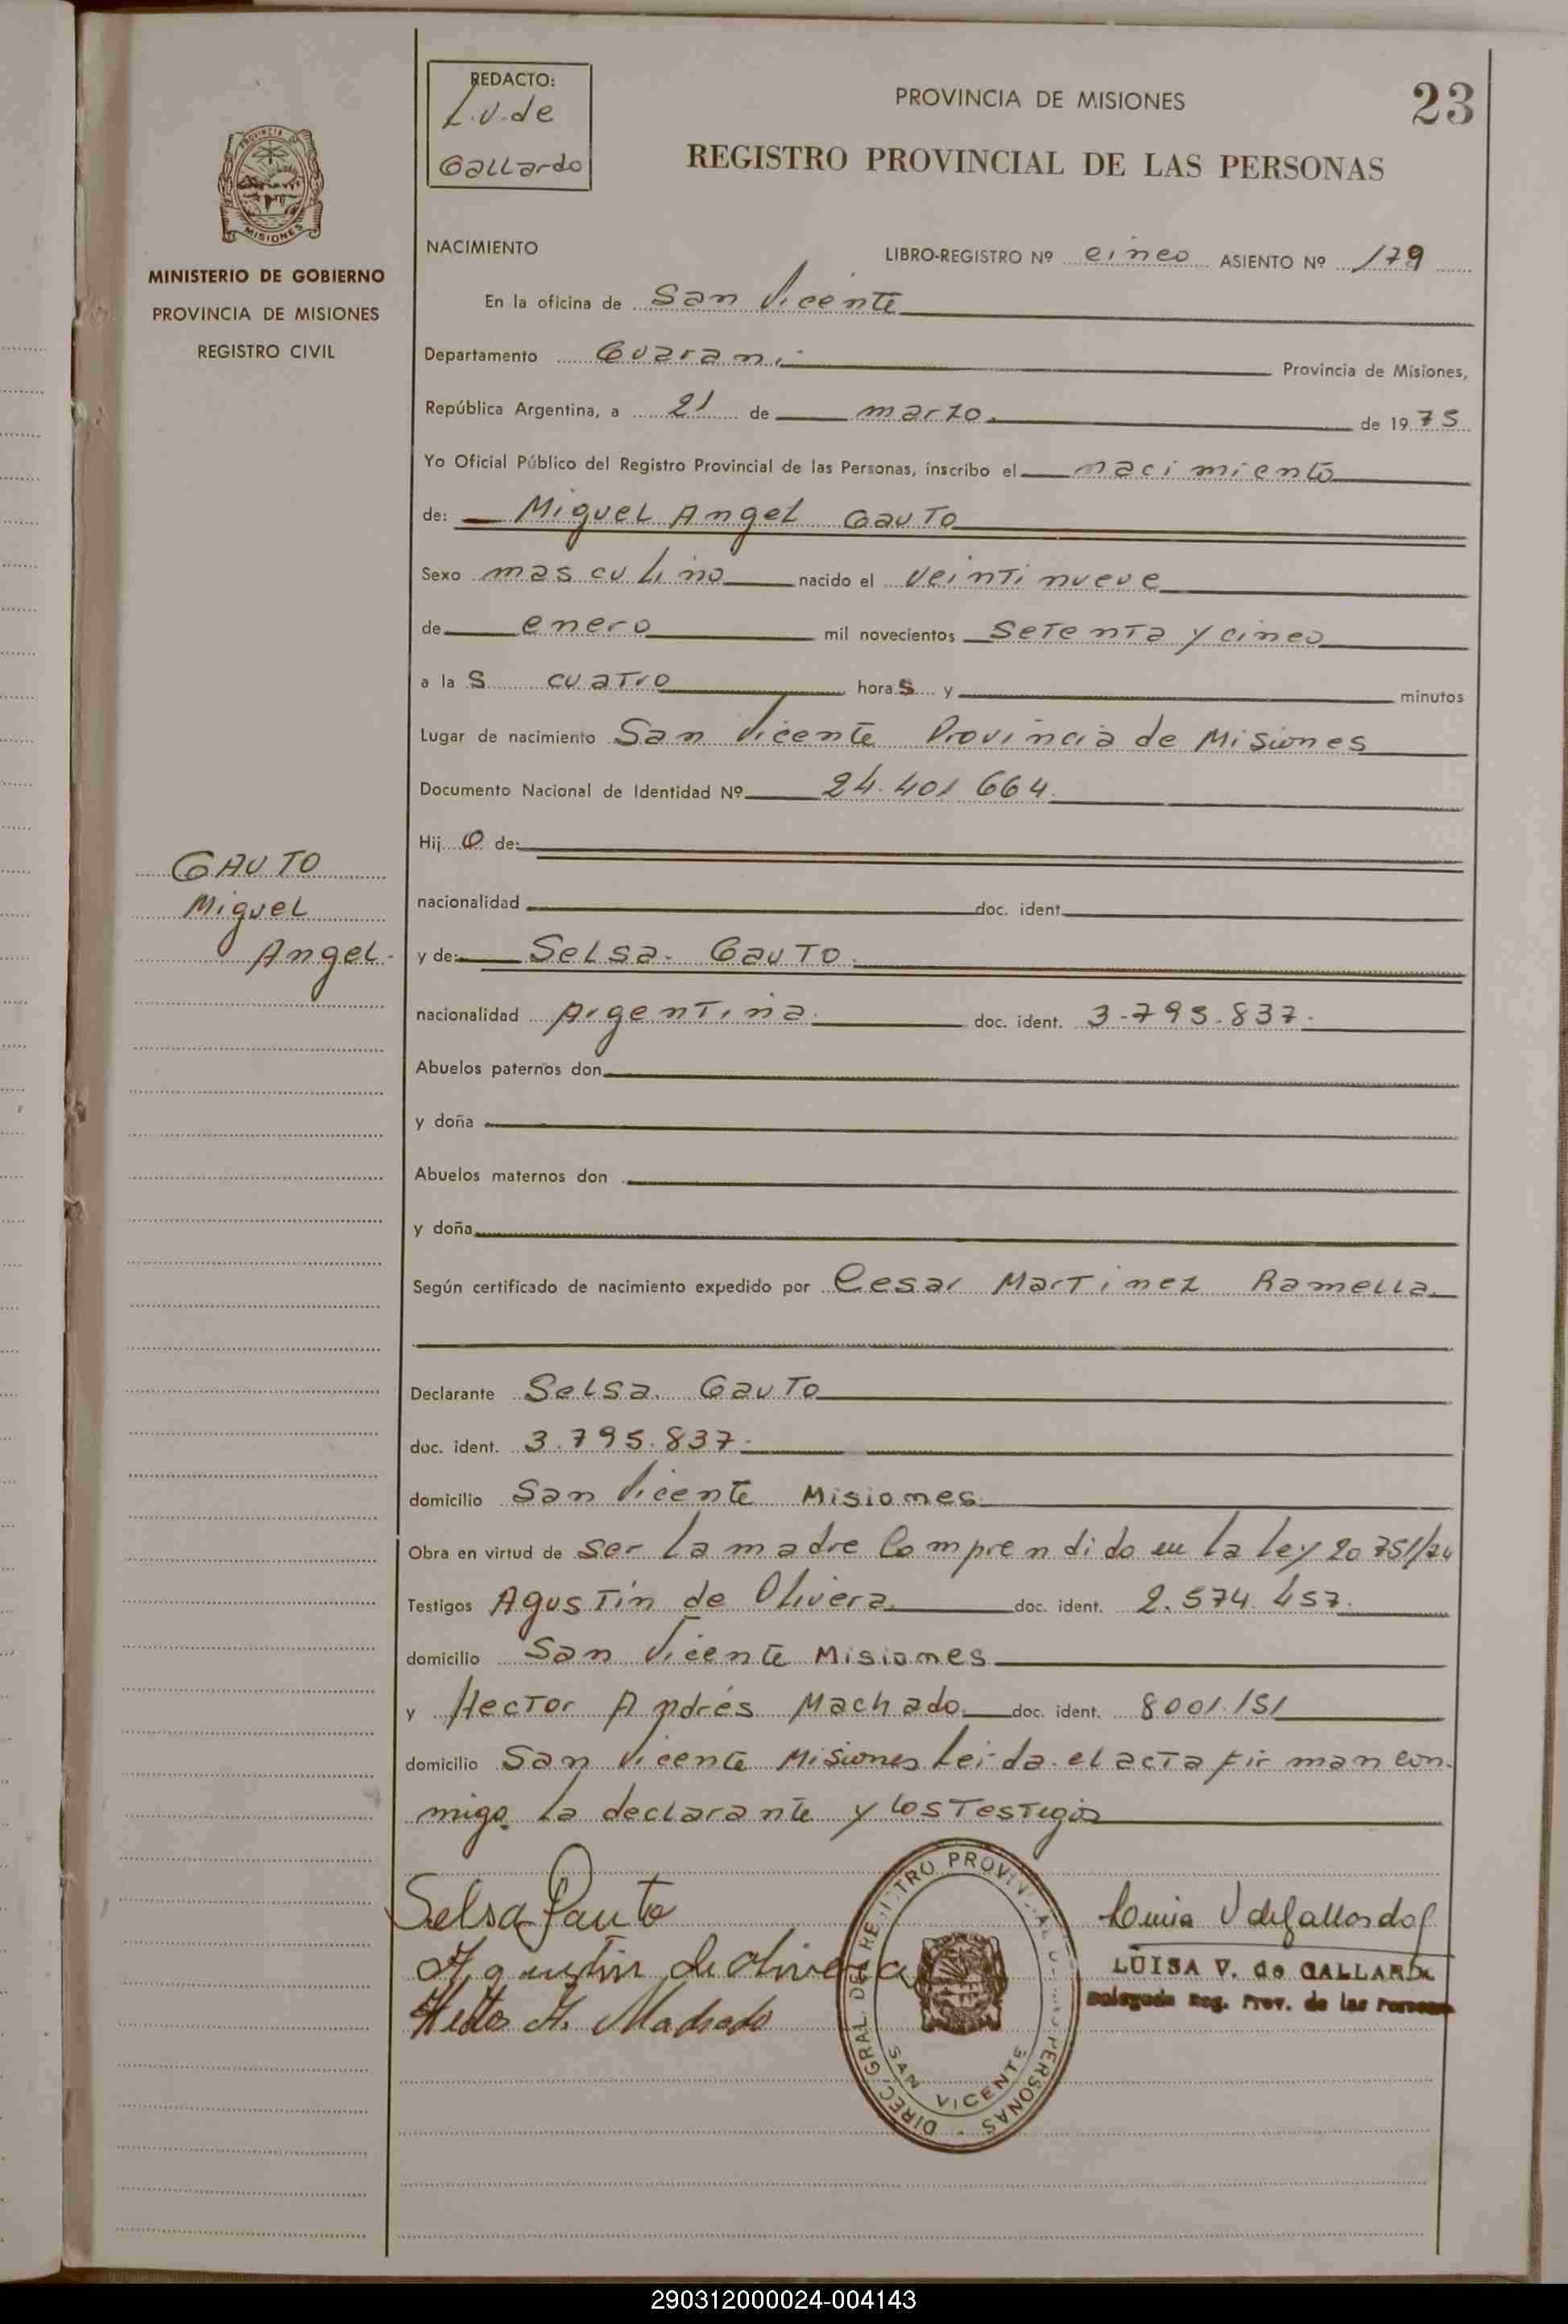 REDACTO:
L.V. de
Gallardo
PROVINCIA DE MISIONES
23
REGISTRO PROVINCIAL DE LAS PERSONAS
PROVINCIA DE
MISIONES
MINISTERIO DE GOBIERNO
PROVINCIA DE MISIONES
REGISTRO CIVIL
NACIMIENTO LIBRO-REGISTRO Nº cinco ASIENTO Nº 179
En la oficina de San Vicente
Departamento Guaraní Provincia de Misiones,
República Argentina, a 21 de marzo de 1975
Yo Oficial Público del Registro Provincial de las Personas, inscribo el nacimiento
de: Miguel Angel Gauto
Sexo masculino nacido el veintinueve
de enero mil novecientos setenta y cinco
a las cuatro horas y minutos
Lugar de nacimiento San Vicente Provincia de Misiones
Documento Nacional de Identidad Nº 24.401.664
Hijo de:
GAUTO
Miguel
Angel.
nacionalidad doc. ident.
y de: Selsa Gauto
nacionalidad Argentina. doc. ident. 3.795.837.
Abuelos paternos don
y doña
Abuelos maternos don
y doña
Según certificado de nacimiento expedido por Cesar Martinez Ramella
Declarante Selsa Gauto
doc. ident. 3.795.837.
domicilio San Vicente Misiones
Obra en virtud de ser la madre Comprendido en la ley 20751/74
Testigos Agustin de Olivera doc. ident. 2.574.457.
domicilio San Vicente Misiones
y Hector Andrés Machado doc. ident. 8001.151
domicilio San Vicente Misiones Leida el acta firman con
migo la declarante y los testigos
Selsa Gauto
Agustin de Olivera
Hector A. Machado
DIREC. GRAL. DEL REGISTRO PROVINCIAL DE LAS PERSONAS
SAN VICENTE
Luisa V de Gallardo
LUISA V. de GALLARDO
Delegada Reg. Prov. de las Personas
290312000024-004143